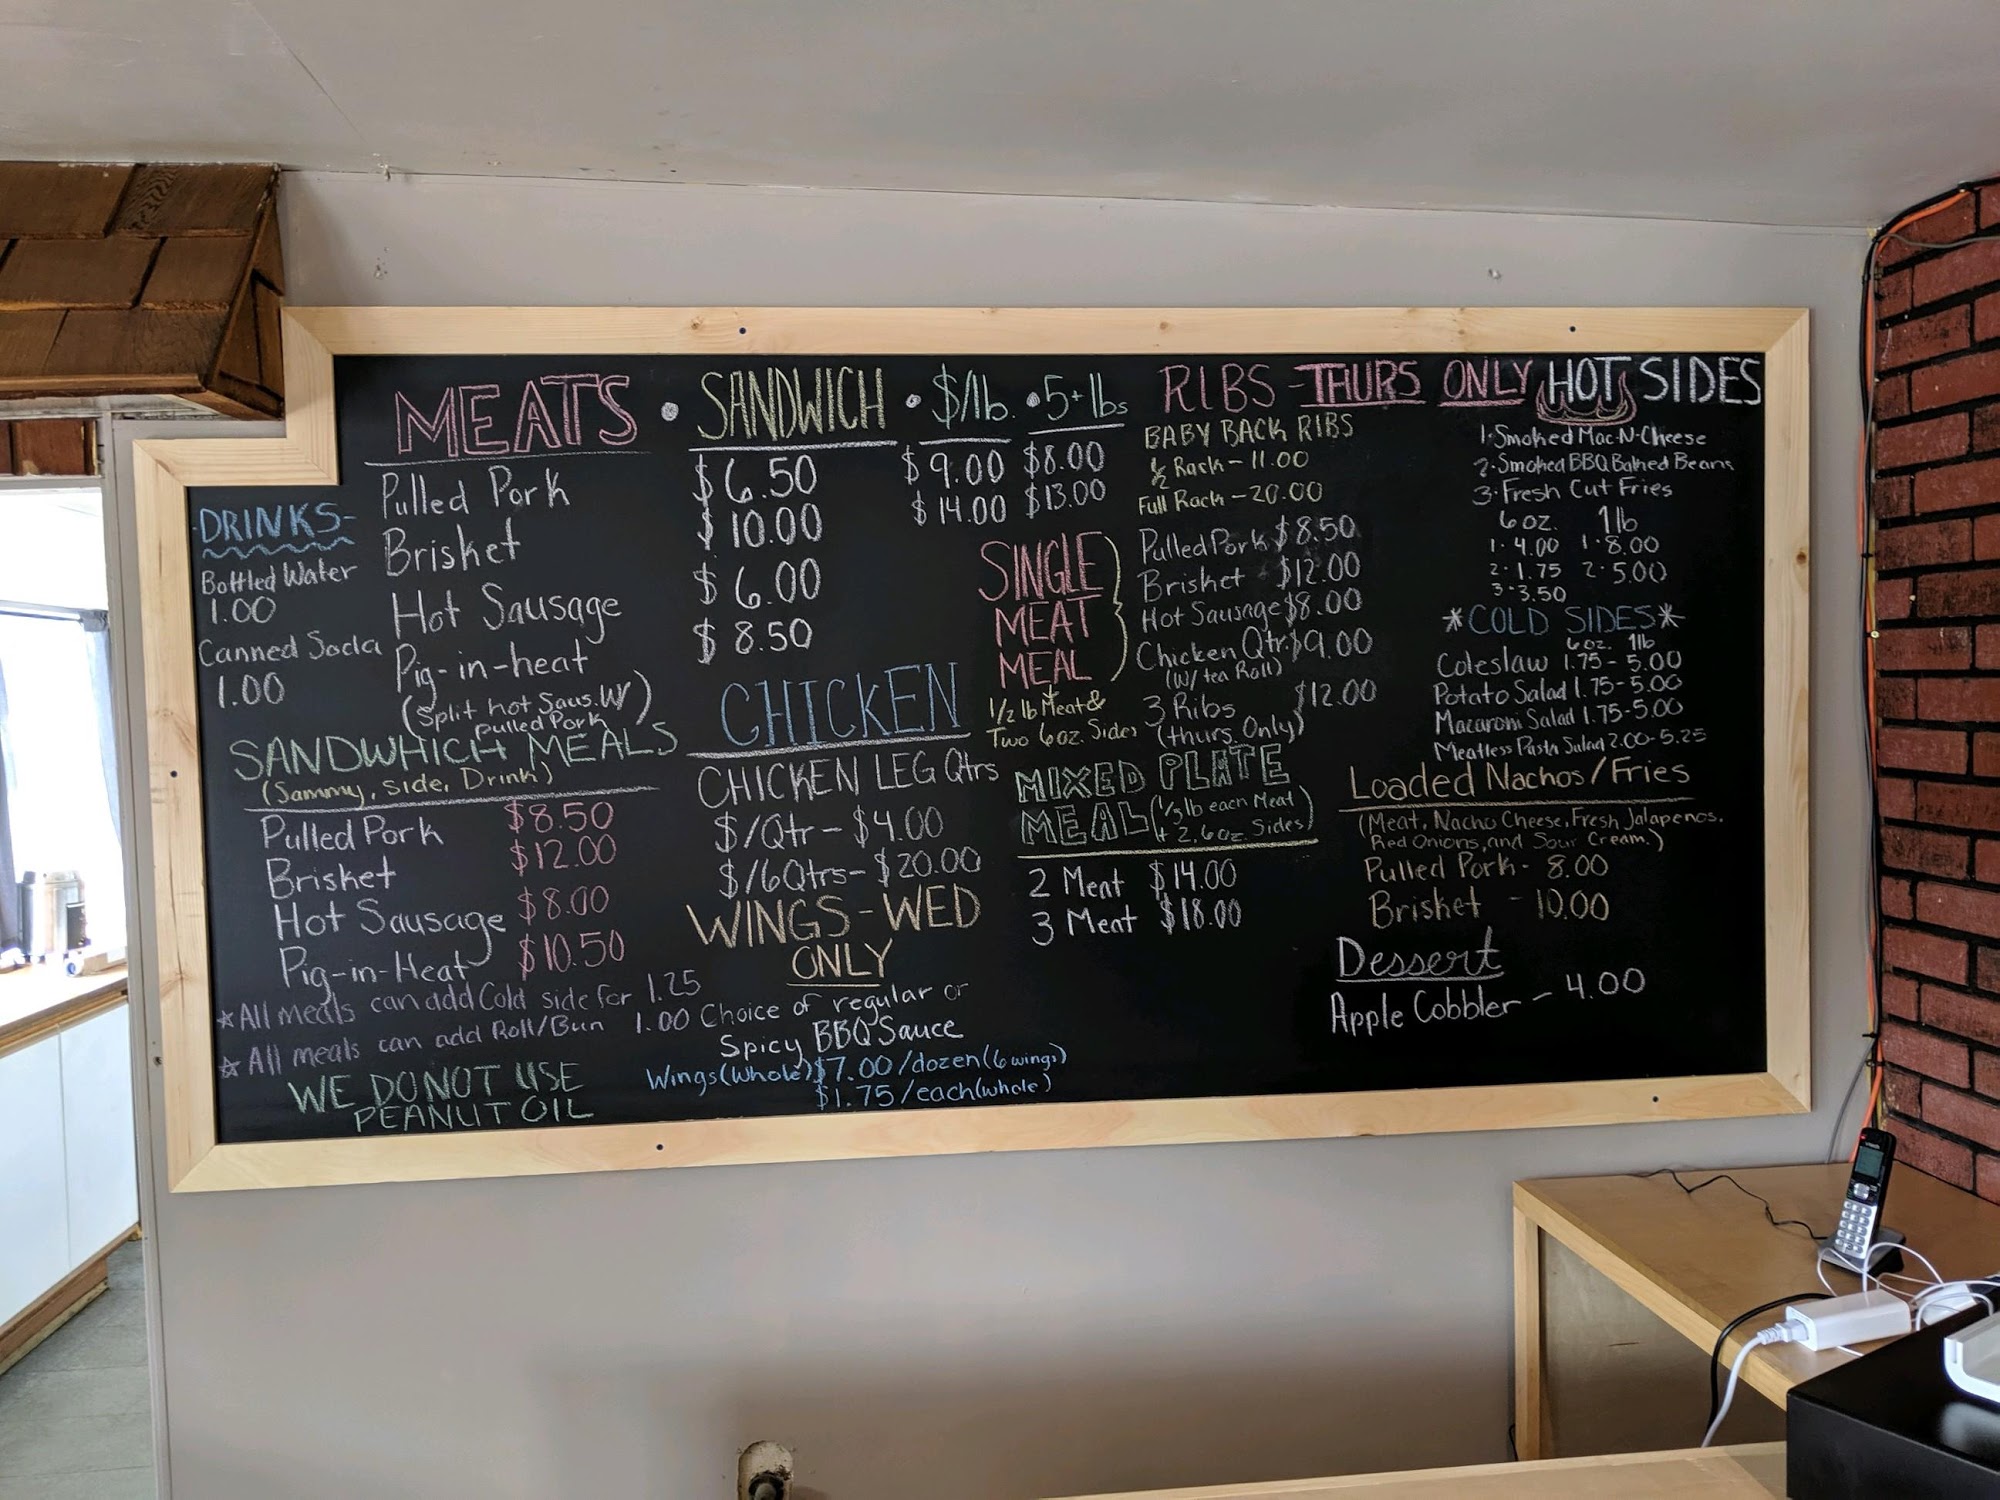 MEATS • SANDWICH • $/lb. • 5+lbs
Pulled Pork $6.50 $9.00 $8.00
Brisket $10.00 $14.00 $13.00
Hot Sausage $6.00
Pig-in-heat $8.50
(Split hot Saus. W/
pulled Pork)
-DRINKS-
Bottled Water
1.00
Canned Soda
1.00
SANDWHICH MEALS
(Sammy, Side, Drink)
Pulled Pork $8.50
Brisket $12.00
Hot Sausage $8.00
Pig-in-Heat $10.50
☆All meals can add Cold side for 1.25
☆All meals can add Roll/Bun 1.00
WE DO NOT USE
PEANUT OIL
CHICKEN
CHICKEN LEG Qtrs
$/Qtr - $4.00
$/6Qtrs - $20.00
WINGS - WED
ONLY
Choice of regular or
Spicy BBQ Sauce
Wings(Whole) $7.00/dozen(6 wings)
$1.75/each(whole)
RIBS - THURS ONLY
BABY BACK RIBS
1/2 Rack - 11.00
Full Rack - 20.00
SINGLE
MEAT
MEAL
1/2 lb Meat &
Two 6oz. Sides
Pulled Pork $8.50
Brisket $12.00
Hot Sausage $8.00
Chicken Qtr. $9.00
(W/ tea Roll)
3 Ribs $12.00
(thurs. Only)
MIXED PLATE
MEAL (1/3 lb each Meat
+ 2, 6oz. Sides)
2 Meat $14.00
3 Meat $18.00
HOT SIDES
1. Smoked Mac-N-Cheese
2. Smoked BBQ Baked Beans
3. Fresh Cut Fries
6 oz. 1lb
1. 4.00 1. 8.00
2. 1.75 2. 5.00
3. 3.50
*COLD SIDES*
6oz. 1lb
Coleslaw 1.75 - 5.00
Potato Salad 1.75 - 5.00
Macaroni Salad 1.75 - 5.00
Meatless Pasta Salad 2.00 - 5.25
Loaded Nachos/Fries
(Meat, Nacho Cheese, Fresh Jalapenos,
Red Onions, and Sour Cream.)
Pulled Pork - 8.00
Brisket - 10.00
Dessert
Apple Cobbler - 4.00